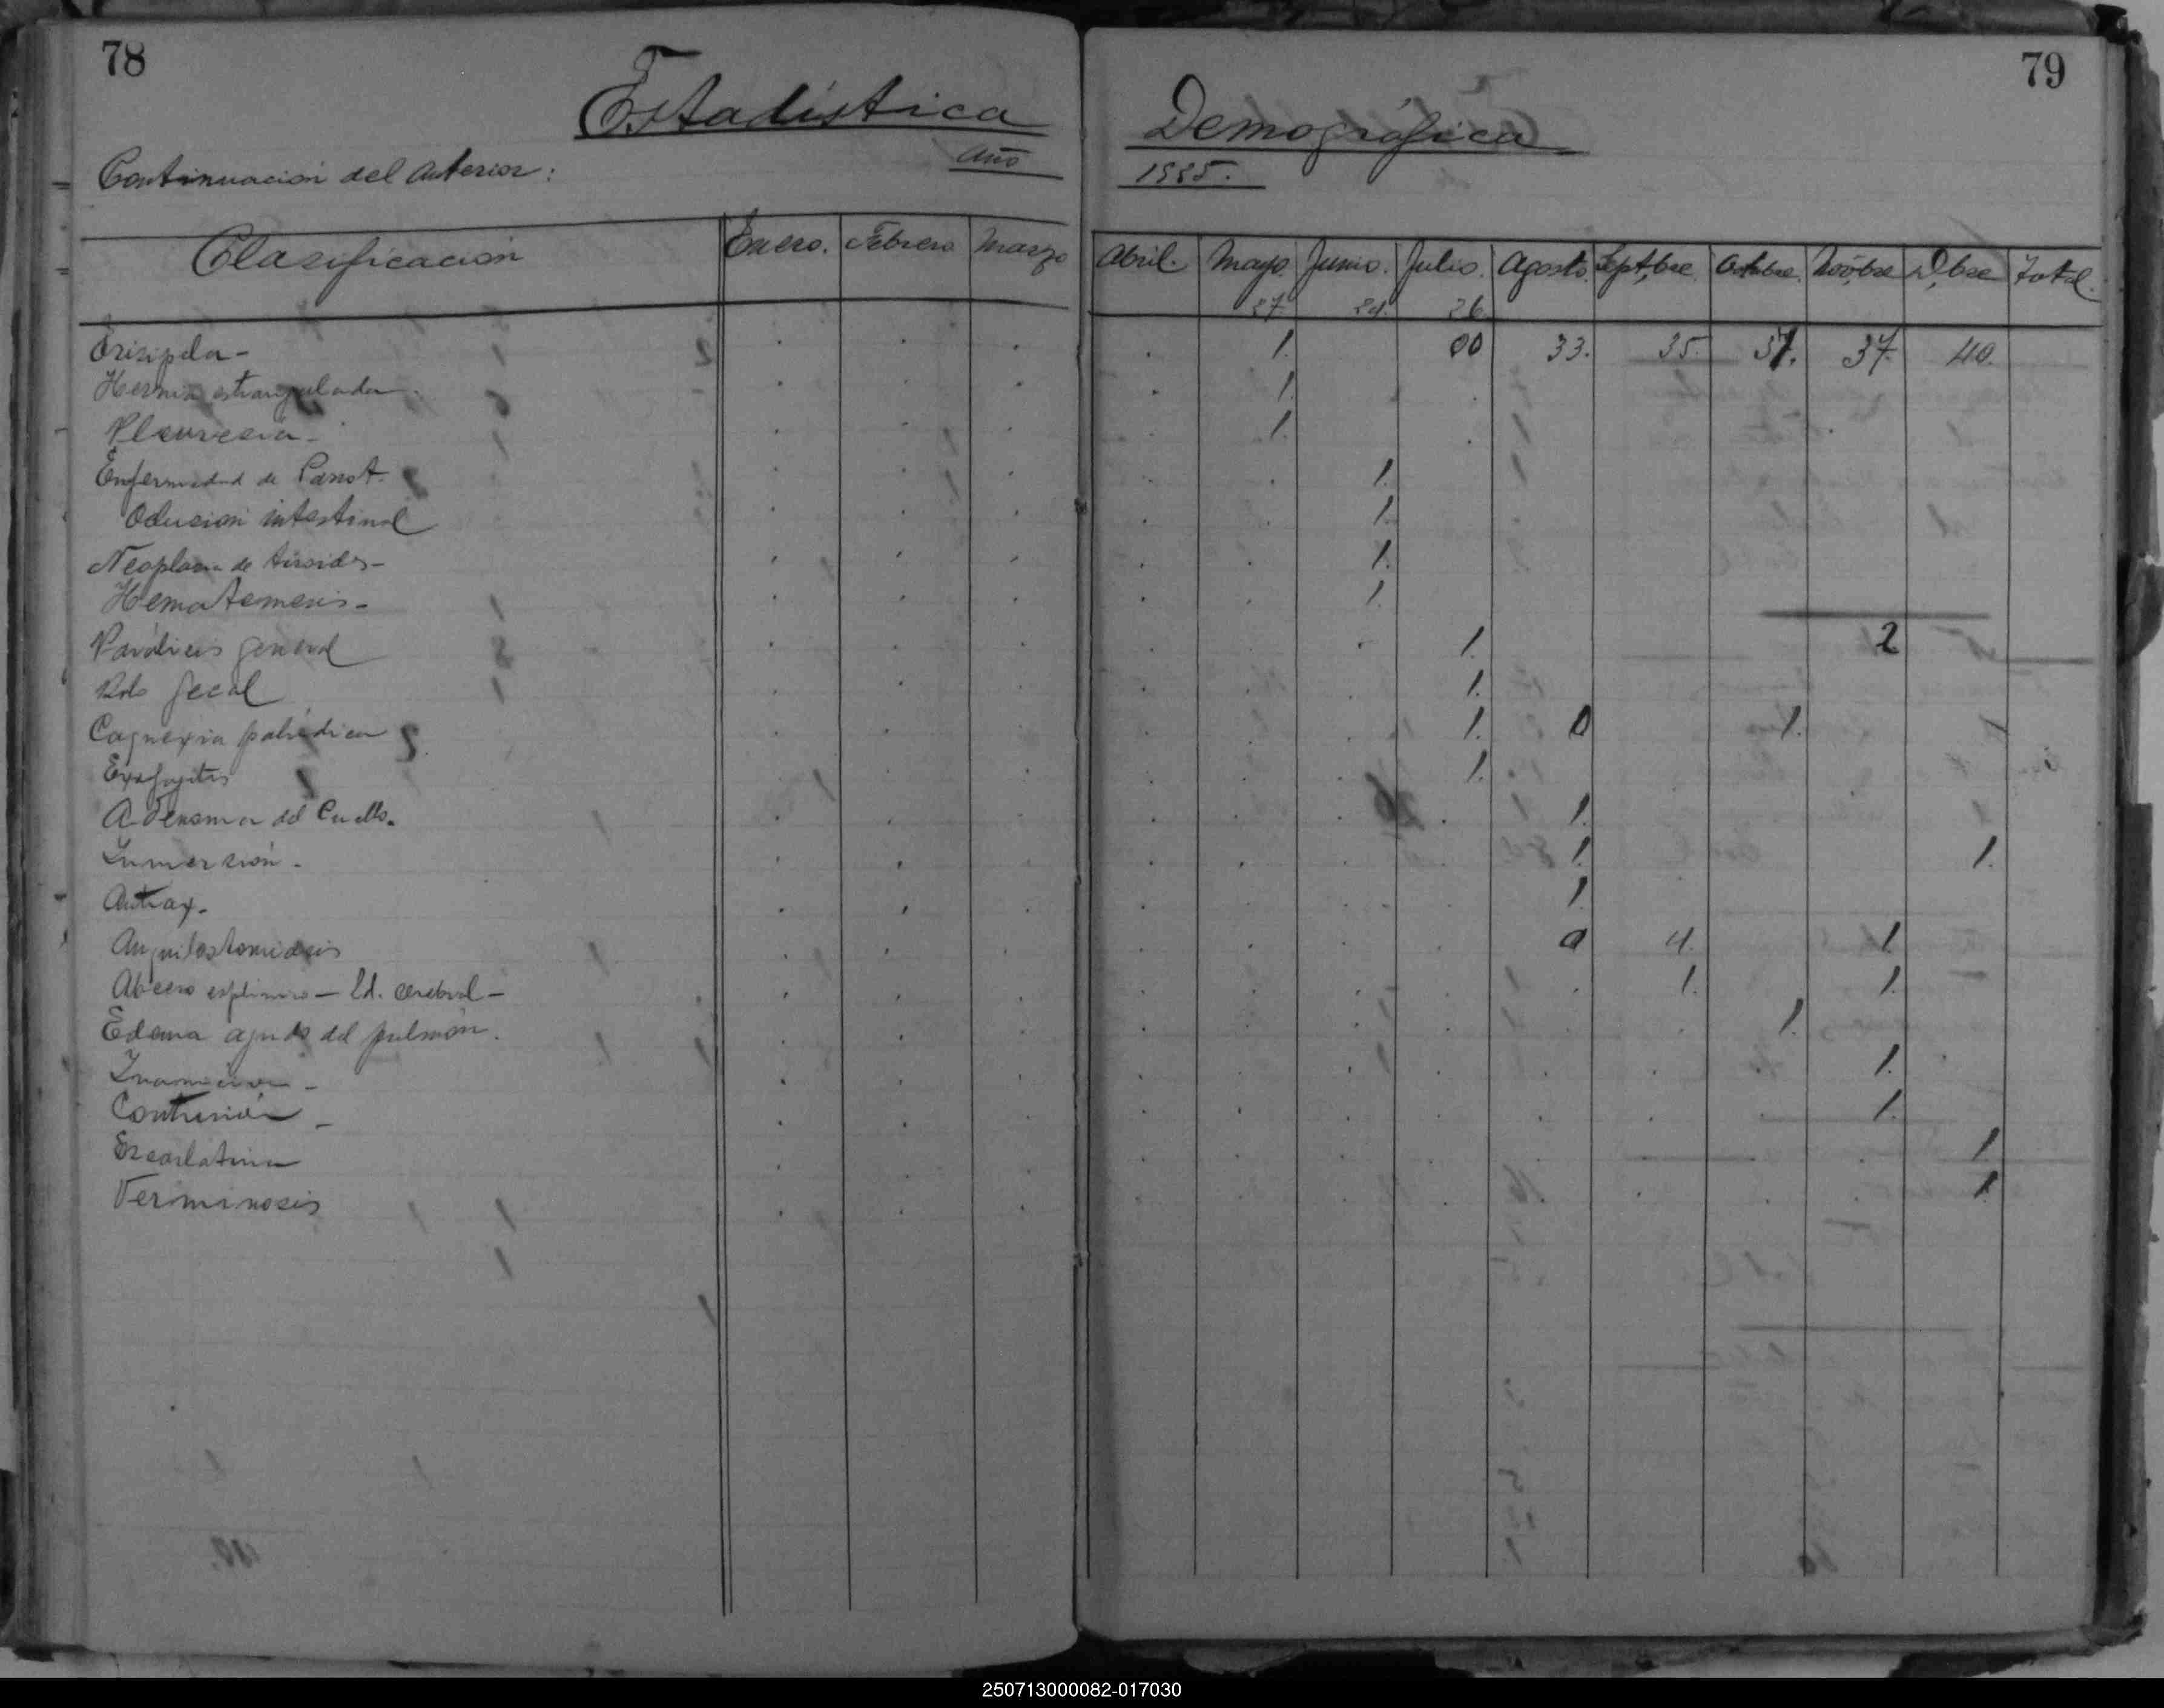 78
79
Estadística Demográfica
Continuación del anterior:
Año 1925.
Clasificación Enero. Febrero Marzo Abril. Mayo. Junio. Julio. Agosto. Septbre. Octubre. Novbre Dbre Total.
27 24. 26.
Erisipela - 1. 00 33. 35. 37. 40.
Hernia estrangulada. 1.
Pleuresia - 1.
Enfermedad de 1.
Oclusion intestinal 1.
Neoplasia de tiroides - 1.
Hematemesis - 1.
Parálisis general 1. 2
fecal 1.
Caquexia palúdica 1. 0 1.
Exofagitis 1.
Adenoma del Cuello. 1.
Inmersión. 1. 1.
Antrax. 1.
Anquilostomidosis 0 4. 1.
Abceso - Id. cerebral - 1. 1.
Edema agudo del pulmón. 1.
Inanición - 1.
Contusión - 1.
Escarlatina 1
Verminosis 1
250713000082-017030